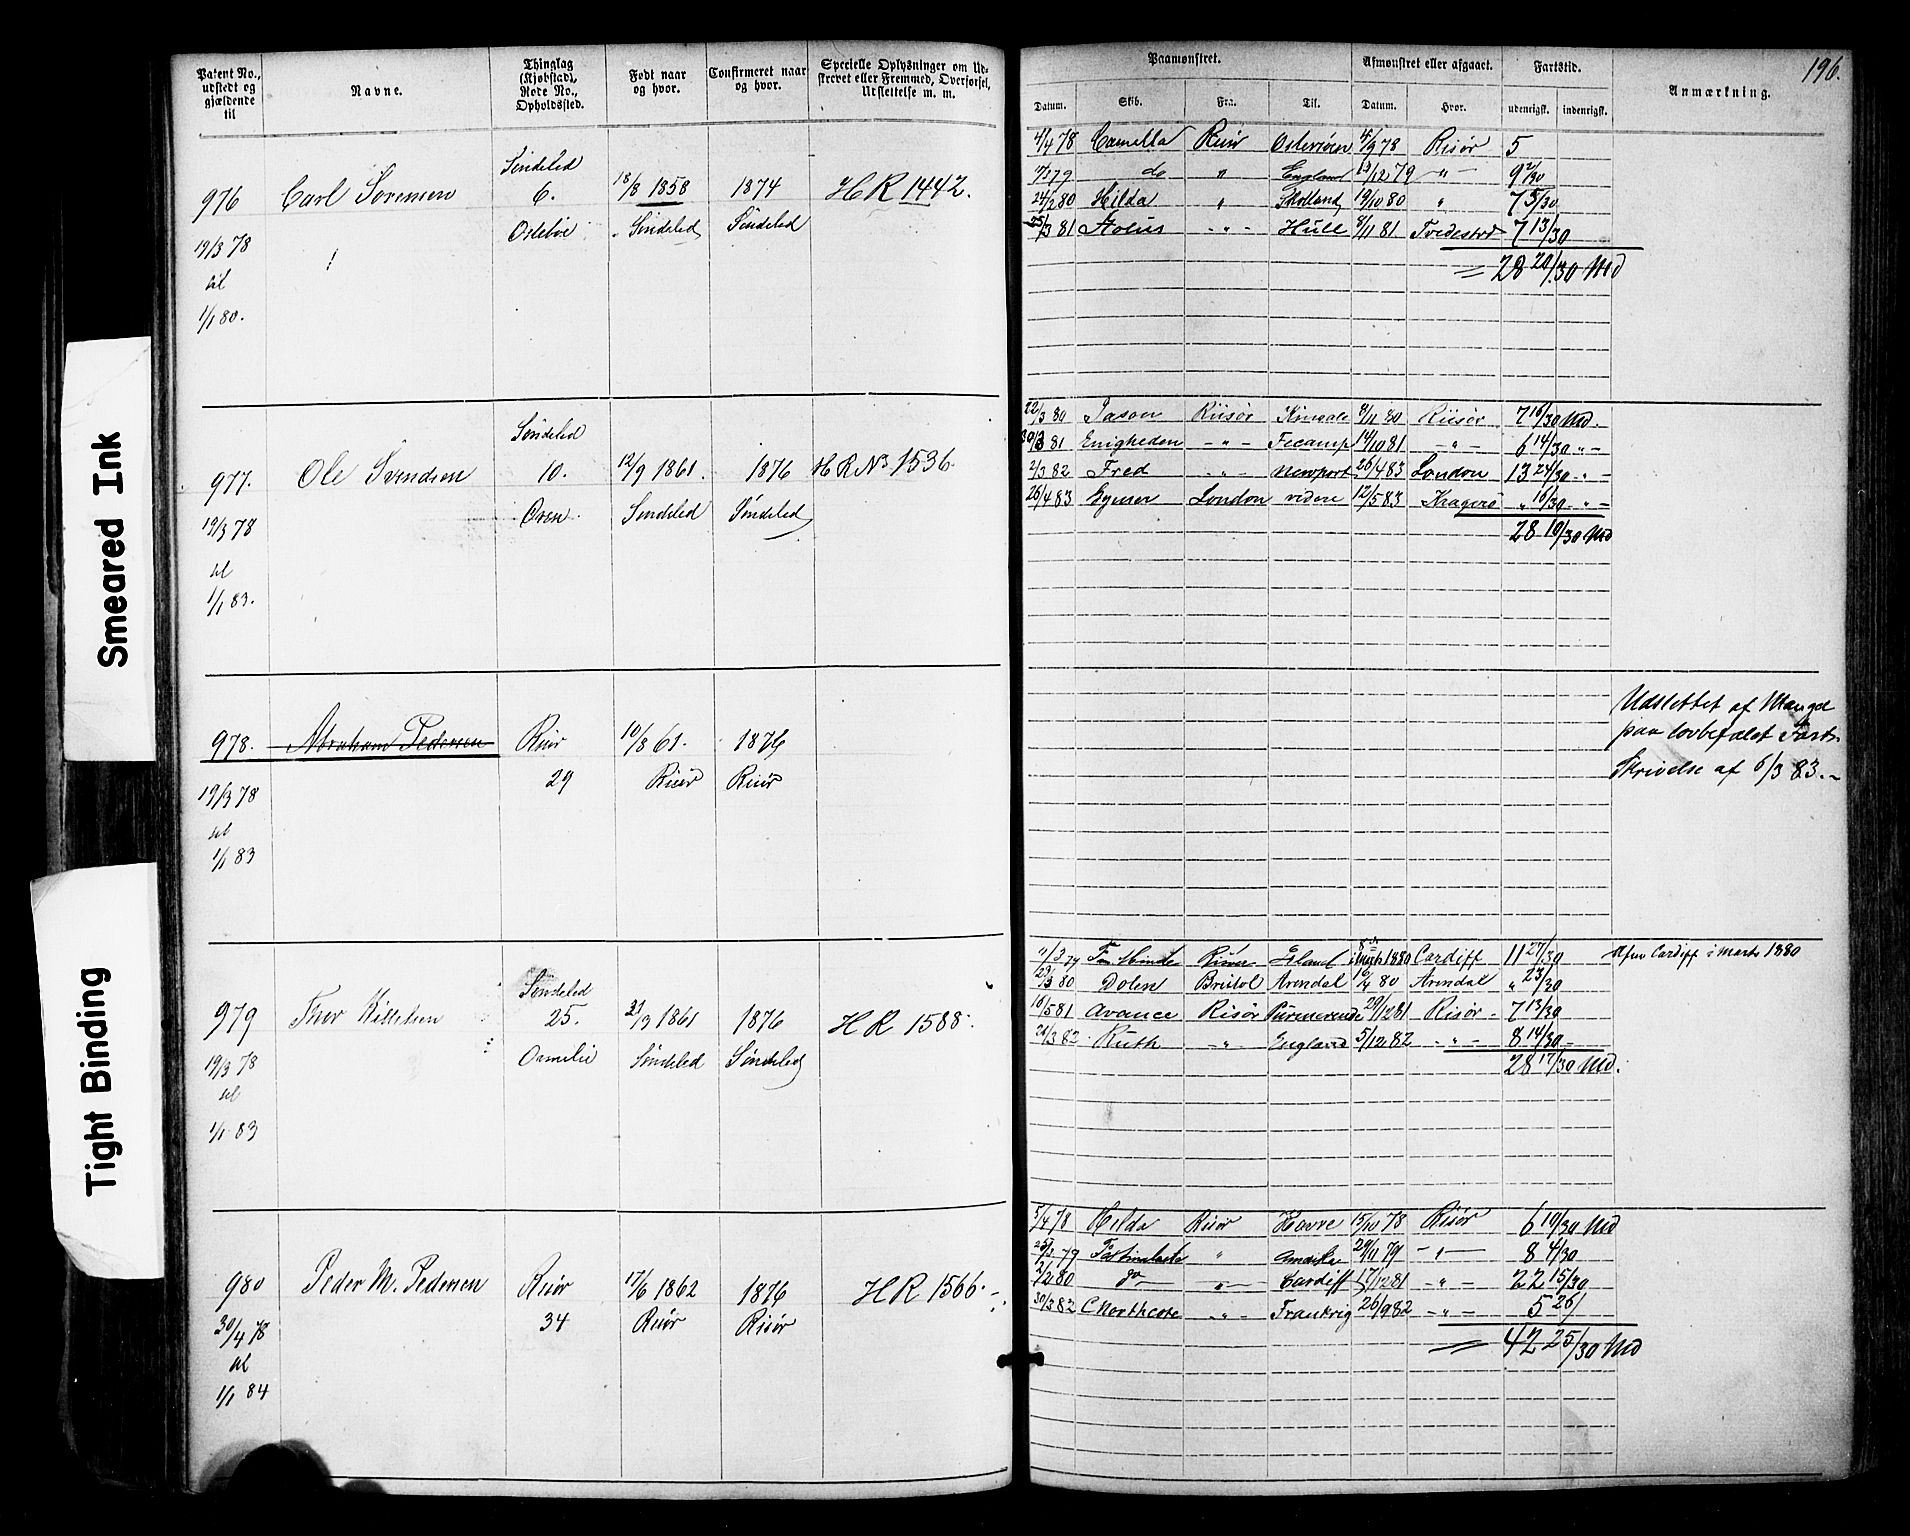 Smeared Ink
Tight Binding
196.
Patent No., udstedt og gjældende til
Navne.
Thinglag (Kjøbstad), Rode No., Opholdssted.
Født naar og hvor.
Confirmeret naar og hvor.
Specielle Oplysninger om Udskrevet eller Fremmed, Overførsel, Udslettelse m. m.
Paamønstret.
Afmønstret eller afgaaet.
Fartstid.
Anmærkning.
Datum. Skib. Fra. Til. Datum. Hvor. udenrigsk. indenrigsk.
976
19/3 78
til
1/1 80.
Carl Sørensen
Søndeled
6.
18/8 1858
Søndeled
1874
Søndeled
H R 1442.
4/4 78 Camilla Risør 78 Risør 5
79 do " England 13/12 79 " 9 2/30
24/2 80 Hilda " Skotland 19/10 80 " 7 5/30
25/3 81 " Hull 8/11 81 Tvedestrd 7 13/30
= 28 20/30 Md
977.
19/3 78
til
1/1 83.
Ole Svendsen
Søndeled
10.
12/9 1861.
Søndeled
1876
Søndeled
H R No 1536.
22/3 80 Jason Riisør Kinsale 8/11 80 Riisør 7 16/30 Md.
30/3 81 Enigheden " Fecamp 14/10 81 " 6 14/30 "
2/3 82 Fred " Newport 26/4 83 London 13 24/30 "
26/4 83 London videre 12/5 83 Kragerö " 16/30 "
28 10/30 Md
978.
19/3 78
til
1/1 83
Abraham Pedersen
Risør
29
10/8 61.
Risør
1876
Risør
Udslettet af Mangel
paa lovbefalet Fart.
Skrivelse af 6/3 83.
979
19/3 78
til
1/1 83
Søndeled
25.
21/3 1861
Søndeled
1876
Søndeled
H R 1588.
11/3 79 1880 Cardiff 11 27/30
Afm Cardiff i Marts 1880
29/3 80 Bristol Arendal 16/4 80 Arendal " 23/30
16/5 81 Avance Risør 29/12 81 Risør 7 13/30
82 Ruth " England 5/12 82 " 8 14/30
28 17/30 Md.
980
30/4 78
til
1/1 84
Peder M. Pedersen
Risør
34
17/6 1862
Risør
1876
Risør
H R 1566.
5/4 78 Hilda Risør Havre 15/10 78 Risør 6 10/30 Md
79 " 29/11 79 " 8 4/30
2/2 80 do " Cardiff 17/12 81 " 22 15/30
30/3 82 C Northcote " 26/9 82 " 5 26/
= 42 25/30 Md